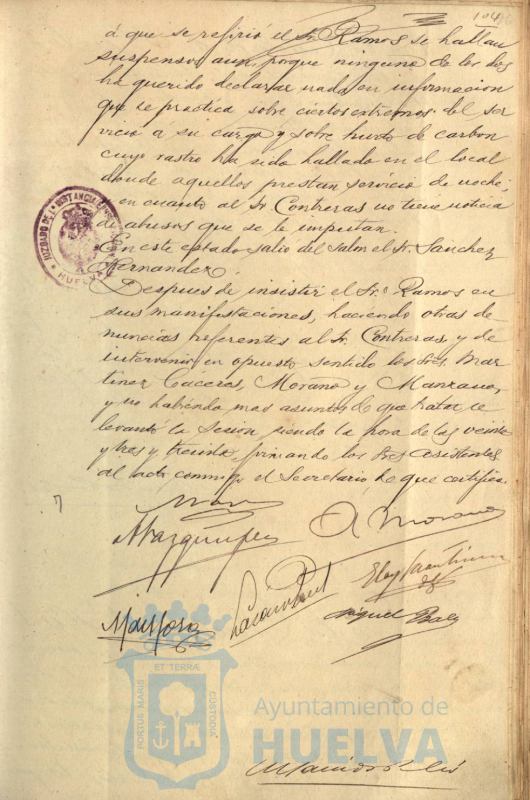 á que se refirió el Sr. Ramos se hallan
suspensos aun, porque ninguno de los dos
ha querido declarar nada en informacion
que se practica sobre ciertos extremos del ser
vicio á su cargo y sobre hurto de carbon
cuyo rastro ha sido hallado en el local
donde aquellos prestan servicio de noche;
en cuanto al Sr. Contreras no tiene noticia
de abusos que se le imputan.
En este estado salio del Salon el Sr. Sanchez
Hernandez.
Despues de insistir el Sr. Ramos en
sus manifestaciones, haciendo otras de
nuncias referentes al Sr. Contreras, y de
intervenir en opuesto sentido los Sres. Mar
tinez Cáceres, Morano y Manzano,
y no habiendo mas asuntos de que tratar se
levantó la Sesion siendo la hora de las veinte
y tres y treinta, firmando los Sres. asistentes
al acto, conmigo el Secretario, de que certifico.
A Morano
Miguel Baez
HUELVA
PORTUS MARIS
ET TERRÆ
CUSTODIA
Ayuntamiento de
HUELVA